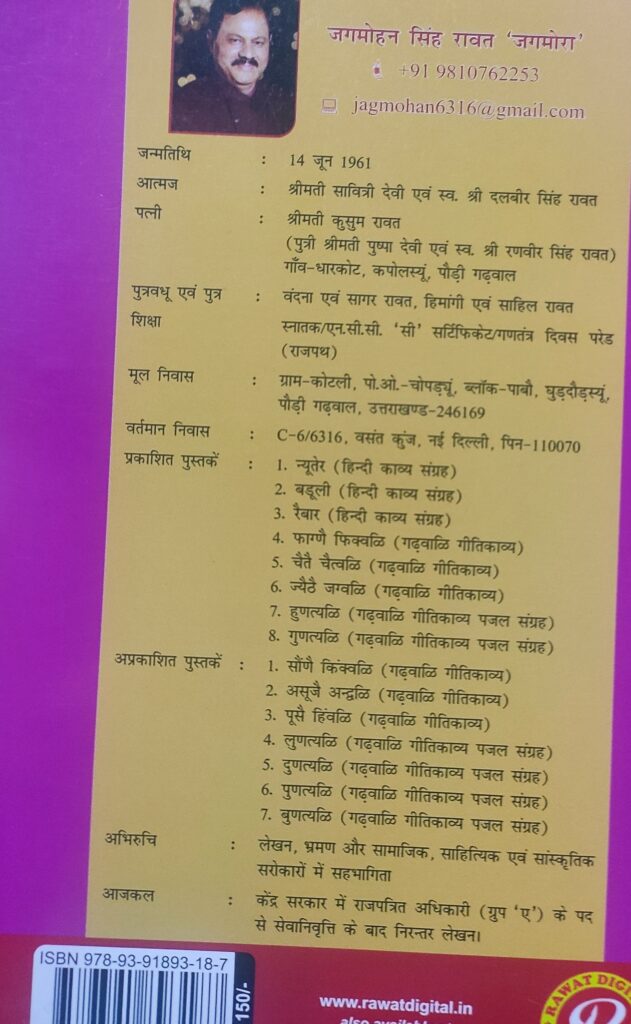 जगमोहन सिंह रावत 'जगमोरा'
+91 9810762253
jagmohan6316@gmail.com
जन्मतिथि : 14 जून 1961
आत्मज : श्रीमती सावित्री देवी एवं स्व. श्री दलबीर सिंह रावत
पत्नी : श्रीमती कुसुम रावत
(पुत्री श्रीमती पुष्पा देवी एवं स्व. श्री रणवीर सिंह रावत)
गाँव-धारकोट, कपोलस्यूं, पौड़ी गढ़वाल
पुत्रवधू एवं पुत्र : वंदना एवं सागर रावत, हिमांगी एवं साहिल रावत
शिक्षा स्नातक/एन.सी.सी. 'सी' सर्टिफिकेट/गणतंत्र दिवस परेड
(राजपथ)
मूल निवास : ग्राम-कोटली, पो.ओ.-चोपड़्यूं, ब्लॉक-पाबौ, घुड़दौड़स्यूं,
पौड़ी गढ़वाल, उत्तराखण्ड-246169
वर्तमान निवास : C-6/6316, वसंत कुंज, नई दिल्ली, पिन-110070
प्रकाशित पुस्तकें : 1. न्यूतेर (हिन्दी काव्य संग्रह)
2. बडूली (हिन्दी काव्य संग्रह)
3. रैबार (हिन्दी काव्य संग्रह)
4. फाग्णै फिक्वळि (गढ़वाळि गीतिकाव्य)
5. चैतै चैत्वळि (गढ़वाळि गीतिकाव्य)
6. ज्यैठै जग्वळि (गढ़वाळि गीतिकाव्य)
7. हुणत्यळि (गढ़वाळि गीतिकाव्य पजल संग्रह)
8. गुणत्यळि (गढ़वाळि गीतिकाव्य पजल संग्रह)
अप्रकाशित पुस्तकें : 1. सौंणै किंक्वळि (गढ़वाळि गीतिकाव्य)
2. असूजै अन्द्वळि (गढ़वाळि गीतिकाव्य)
3. पूसै हिंवळि (गढ़वाळि गीतिकाव्य)
4. लुणत्यळि (गढ़वाळि गीतिकाव्य पजल संग्रह)
5. दुणत्यळि (गढ़वाळि गीतिकाव्य पजल संग्रह)
6. पुणत्यळि (गढ़वाळि गीतिकाव्य पजल संग्रह)
7. बुणत्यळि (गढ़वाळि गीतिकाव्य पजल संग्रह)
अभिरुचि : लेखन, भ्रमण और सामाजिक, साहित्यिक एवं सांस्कृतिक
सरोकारों में सहभागिता
आजकल : केंद्र सरकार में राजपत्रित अधिकारी (ग्रुप 'ए') के पद
से सेवानिवृत्ति के बाद निरन्तर लेखन।
ISBN 978-93-91893-18-7
150/-
www.rawatdigital.in
RAWAT DIGI